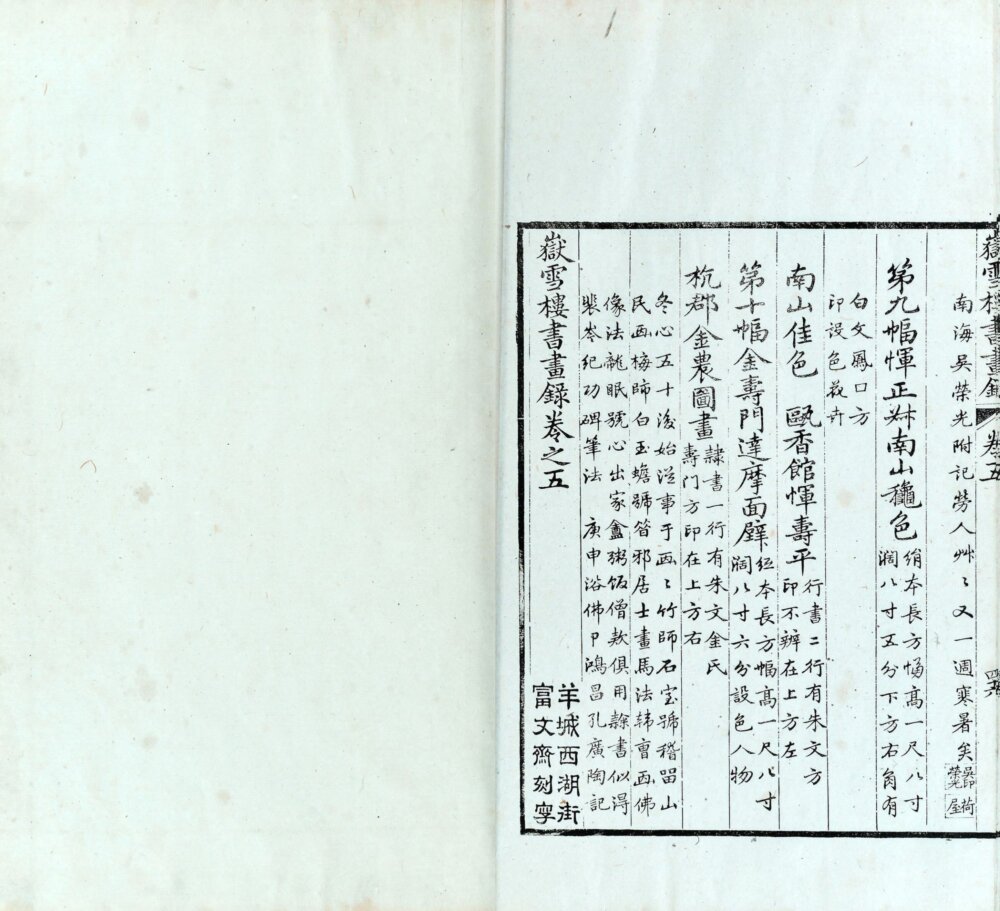 嶽雪樓書畫錄 卷五
南海吳榮光附記勞人艸〻又一週寒暑矣 吳印榮光 荷屋
第九幅惲正叔南山穐色 絹本長方幅高一尺八寸
濶八寸五分下方右角有
白文鳳口方
印設色花卉
南山佳色 甌香館惲壽平 行書二行有朱文方
印不辨在上方左
第十幅金壽門達摩面壁 紙本長方幅高一尺八寸
濶八寸六分設色人物
杭郡金農圖畫 隸書一行有朱文金氏
壽門方印在上方右
冬心五十後始從事于画〻竹師石室號稽畱山
民画梅師白玉蟾號昝邪居士畫馬法韩亶画佛
像法龍眠號心出家盦粥饭僧欵俱用隸書似得
裴岑纪功碑筆法 庚申浴佛日鴻昌孔廣陶記
嶽雪樓書畫錄卷之五
羊城西湖街
富文齋刻字